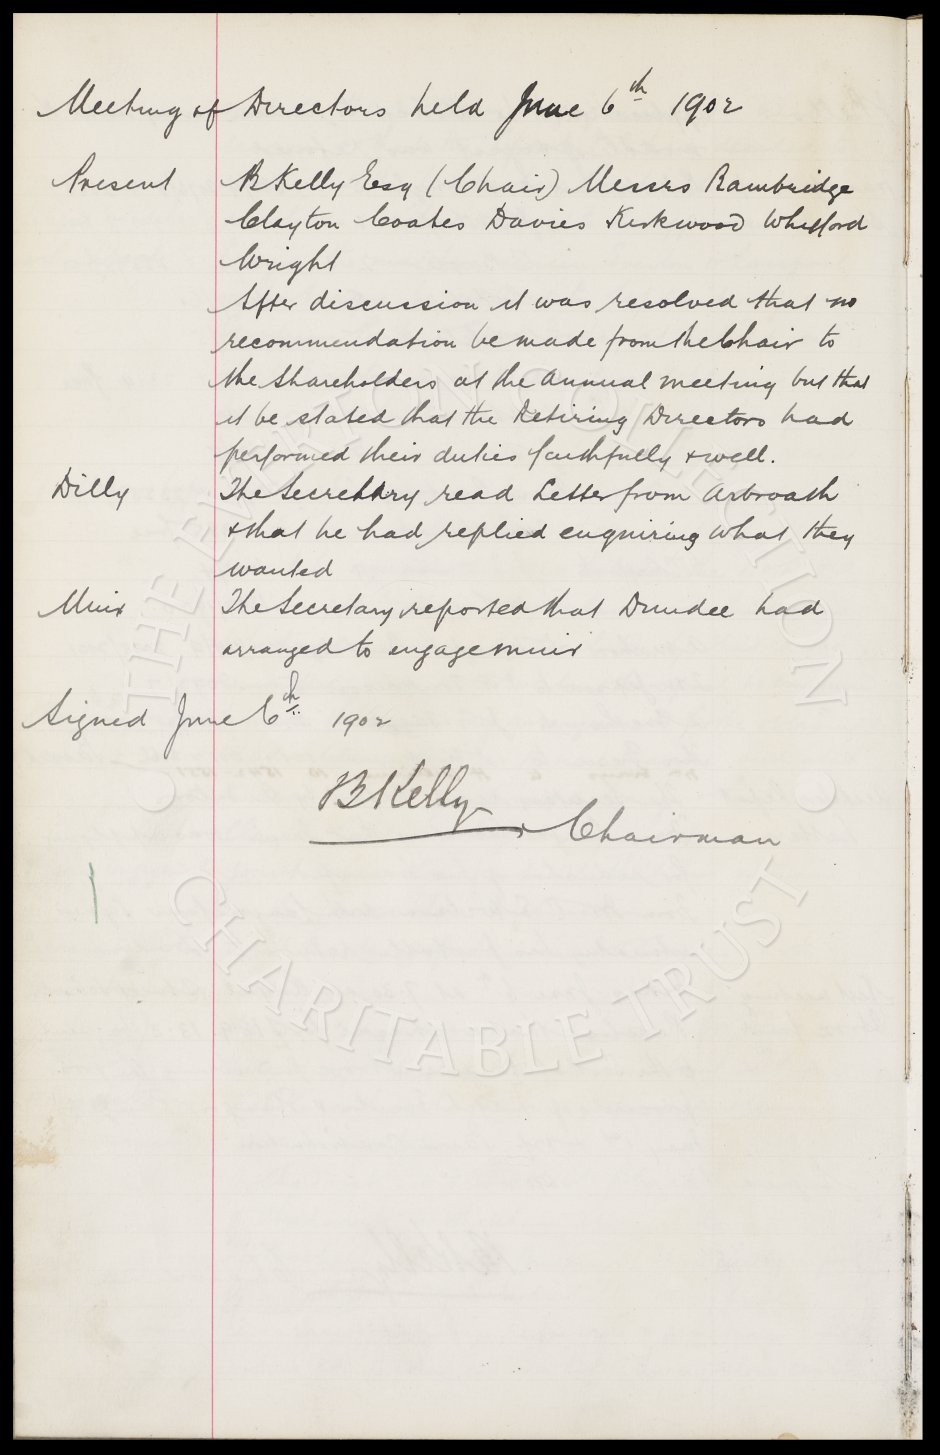 Meeting of Directors held June 6th 1902
Present B Kelly Esq (Chair) Messrs Bainbridge
Clayton Coates Davies Kirkwood Whitford
Wright
After discussion it was resolved that no
recommendation be made from the Chair to
the Shareholders at the Annual meeting but that
it be stated that the Retiring Directors had
performed their duties faithfully & well.
Dilly The Secretary read Letter from Arbroath
& that he had replied enquiring what they
wanted
Muir The Secretary reported that Dundee had
arranged to engage Muir
Signed June 6th 1902
B Kelly
Chairman
THE EVERTON COLLECTION
CHARITABLE TRUST